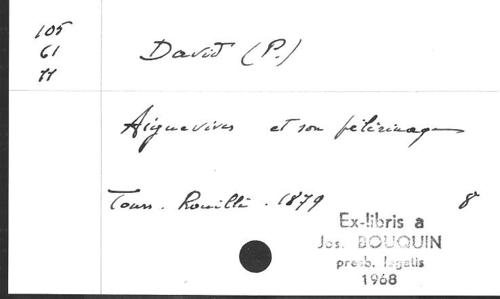 105
61
11
David (P.)
Aiguevives et son pèlerinage
Tours. Rouillé. 1879 8°
Ex-libris a
Jos. BOUQUIN
presb. legatis
1968